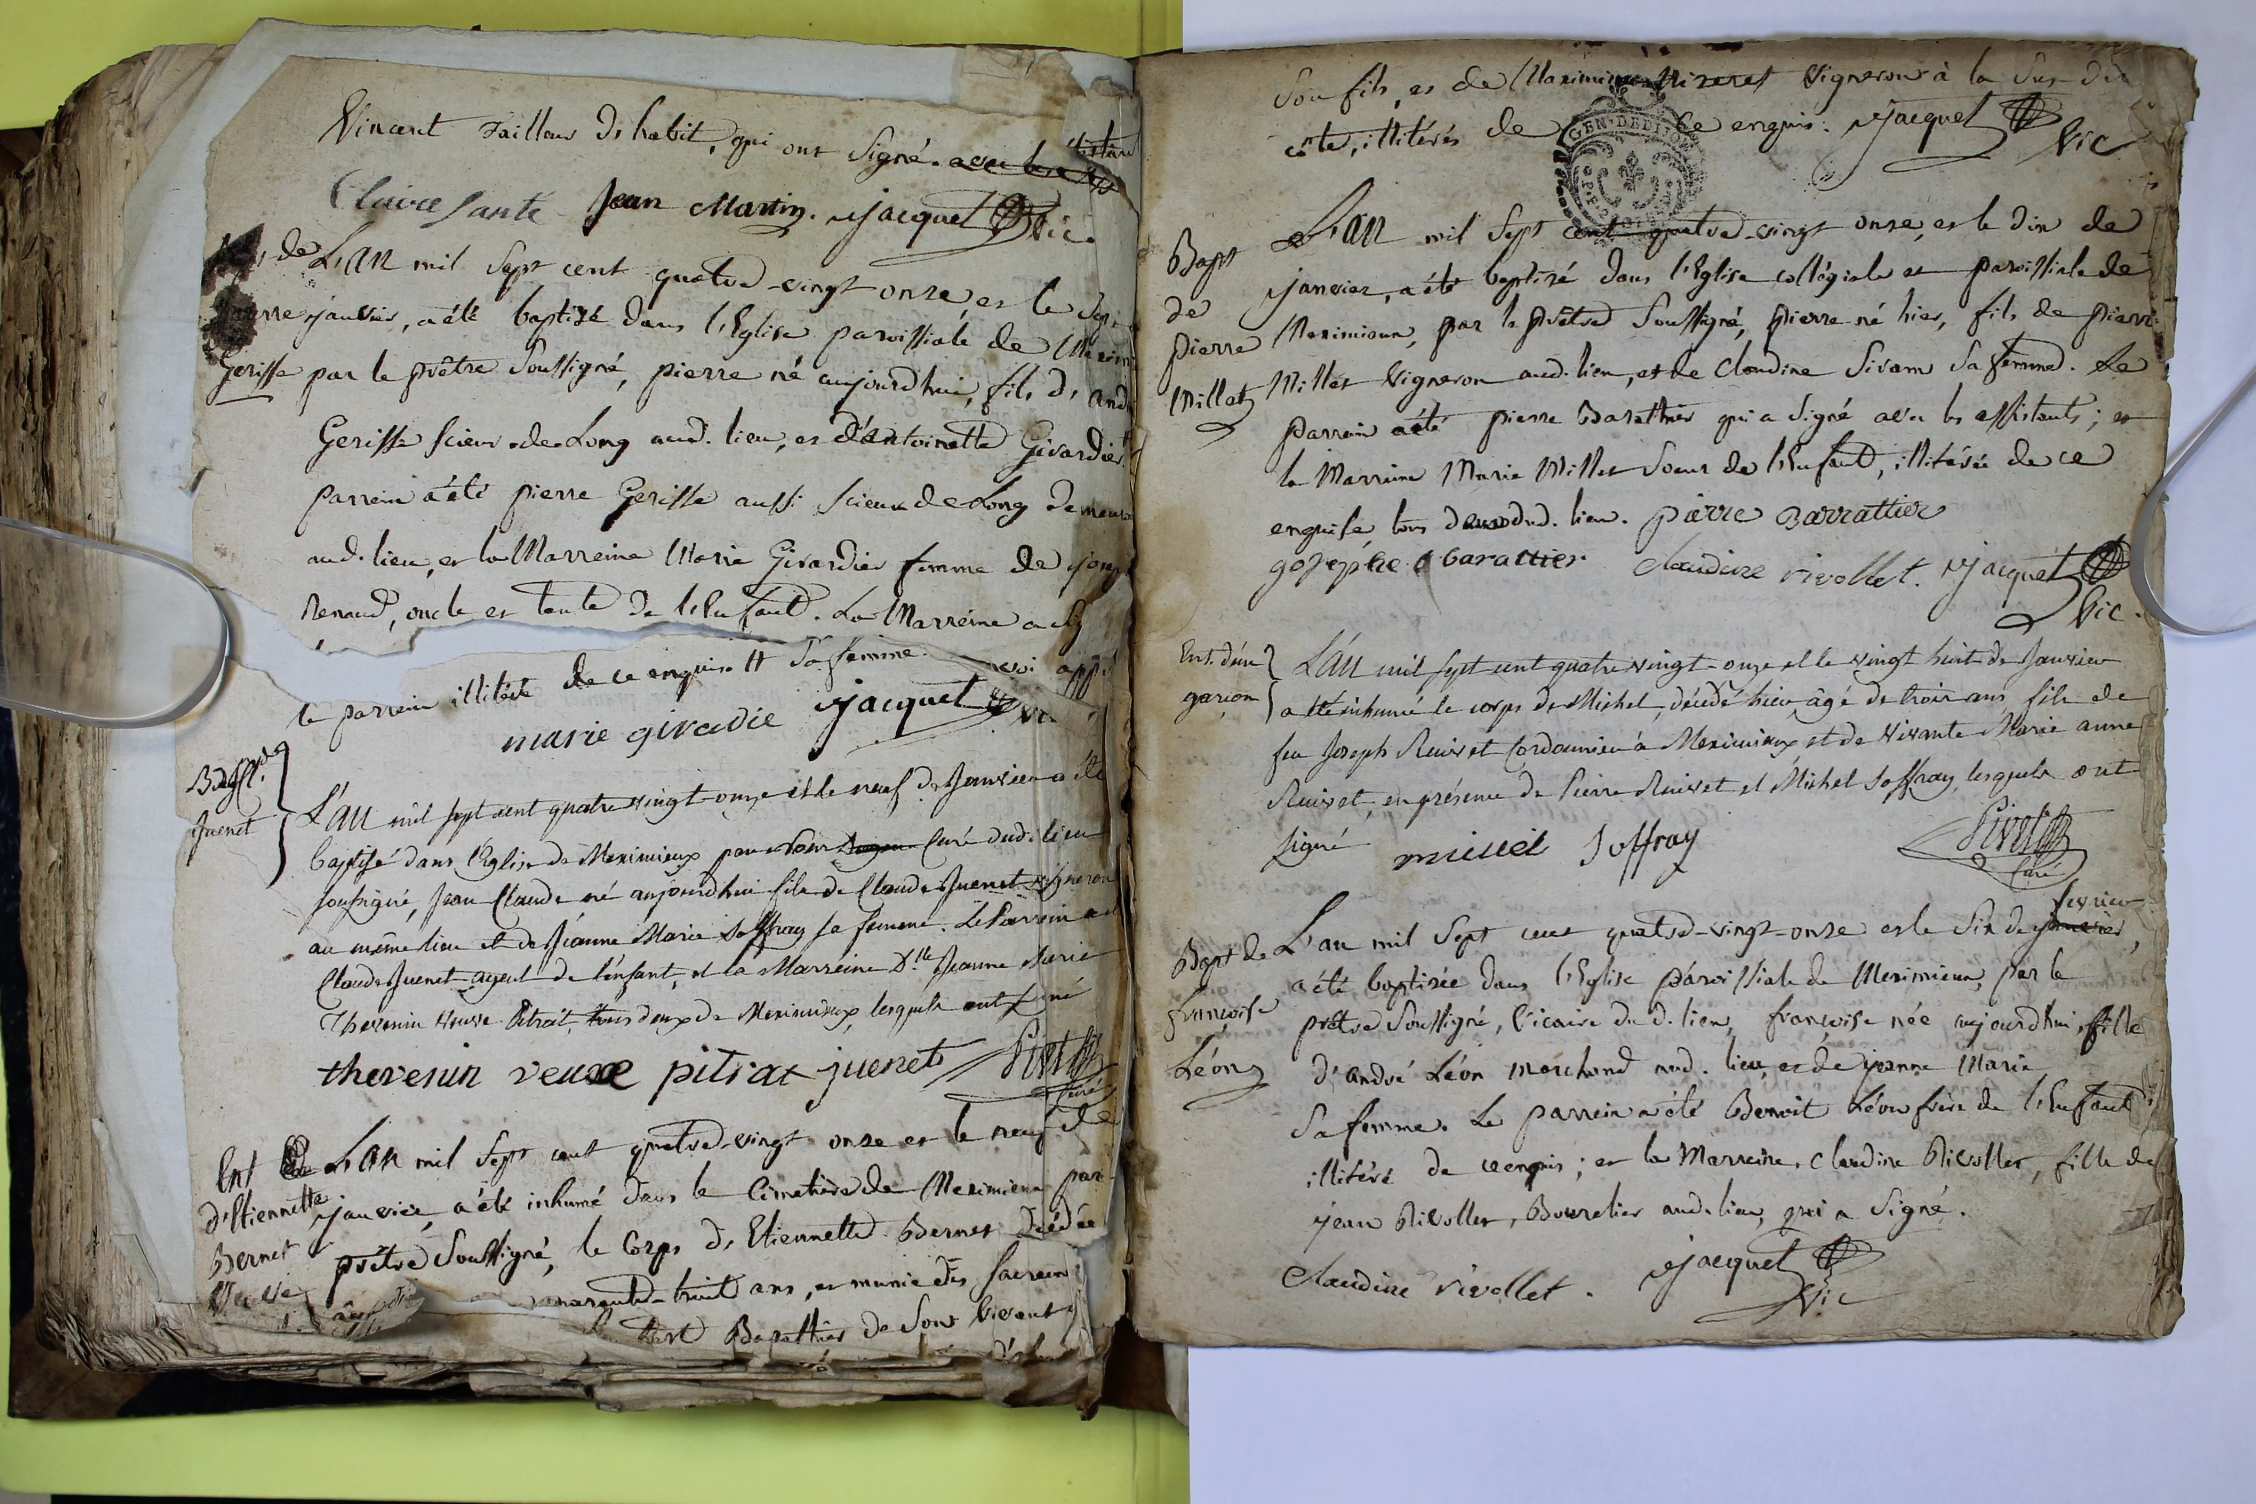 Vincent Tailleur d'habit, qui ont signé. avec les
Claire Santé Jean Martin. Jacquet Vic.
de L'an mil sept cent quatre-vingt onze, et le sept
pierre janvier, a été baptisé dans l'Eglise paroissiale de Mexim
Gerisse par le prêtre soussigné, pierre né aujourdhui, fils d'and
Gerisse scieur de Long aud. lieu, et d'antoinette Girardier.
parrein a été pierre Gerisse aussi scieur de Long demeur
aud. lieu, et la Marreine Marie Girardier femme de
Renaud, oncle et tante de l'Enfant. La Marreine a
le parrein illitéré de ce enquis # sa femme.
marie giradie Jacquet
Bapt. de
Juenet
L'an mil sept cent quatre vingt-onze et le neuf de Janvier a été
baptisé dans l'Eglise de Meximieux par Curé dud. lieu
soussigné, Jean Claude né aujourdhui fils de Claude Juenet vigneron
au même lieu et de Jeanne Marie Joffray sa femme. Le Parrein a été
Claude Juenet ayeul de l'enfant, et la Marreine D.lle Jeanne Marie
Thevenin veuve Pitrat, tous deux de Meximieux, lesquels ont signé
thevenin veuve pitrat juenet Pivet
Curé
Ent de L'an mil sept cent quatre-vingt onze et le neuf de
d'Etiennette janvier, a été inhumé dans le Cimetière de Meximieux par
Bernet prêtre soussigné, le Corps d'Etiennette Bernet décédée
Veuve âg quarante-huit ans, et munie des sacrem
Barathier de son vivant
son fils, et de Maximin Vigneron à la Sus dit
côte, illitérés de ce enquis. Jacquet
Vic
Bapt L'an mil sept cent quatre-vingt onze, et le dix de
de janvier, a été baptisé dans l'Eglise collégiale et paroissiale de
pierre Meximieux, par le prêtre soussigné, pierre né hier, fils de pierre
Millet Millet Vigneron aud. lieu, et de Claudine Sivam sa femme. Le
parrein a été pierre Barathier qui a signé avec les assistants ; et
la Marreine Marie Millet soeur de l'Enfant, illitérée de ce
enquise, tous deux dud. lieu. pierre Barrattier
gosephe barattier Claudine rivollet. Jacquet
Vic.
Ent. d'un
garçon
L'an mil sept cent quatre vingt-onze et le vingt huit de Janvier
a été inhumé le corps de Michel, décédé hier, âgé de trois ans, fils de
feu Joseph Ruivet Cordonnier à Meximieux et de vivante Marie anne
Ruivet, en présence de Pierre Ruivet et Michel Joffray, lesquels ont
signé michel Joffray Pivet
Curé
fevrier
Bapt de L'an mil sept cent quatre-vingt-onze et le six de janvier,
a été baptisée dans l'Eglise paroissiale de Meximieux, par le
françoise prêtre soussigné, vicaire du d. lieu, françoise née aujourdhui, fille
Léon d'andré Léon marchand aud. lieu, et de jeanne Marie
sa femme. Le parrein a été Benoit Léon frère de l'Enfant
illitéré de ce enquis ; et la Marreine, Claudine Rivollet, fille de
jean Rivollet, Bourrelier aud. lieu, qui a signé.
Claudine rivollet. Jacquet
Vic